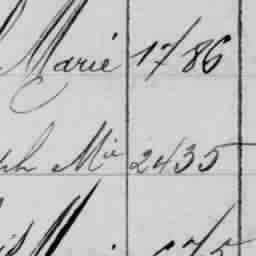 Marie 1786
ph Mie 2435